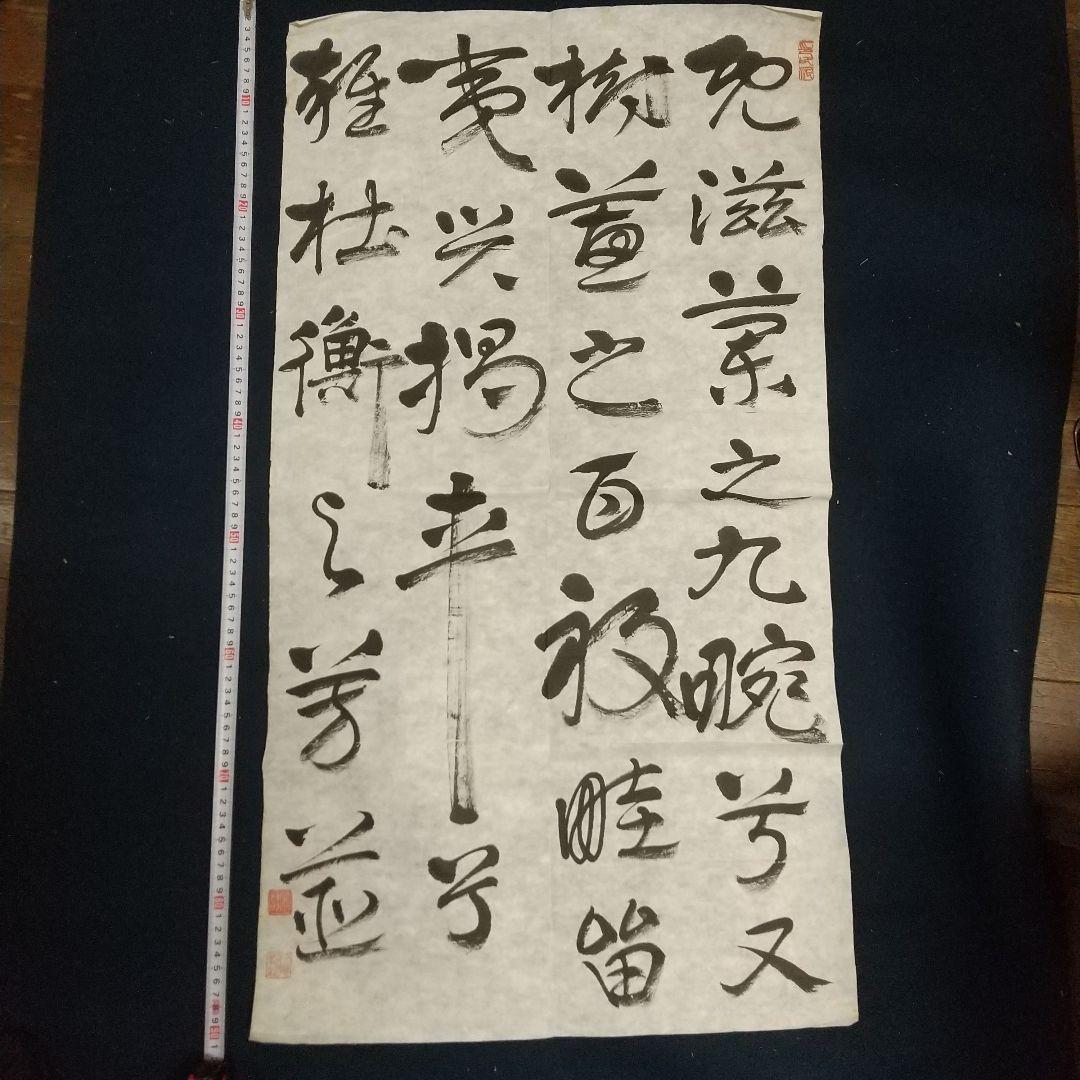 既滋蘭之九畹兮又
樹蕙之百畝畦留
夷與揭車兮
雜杜衡與芳芷